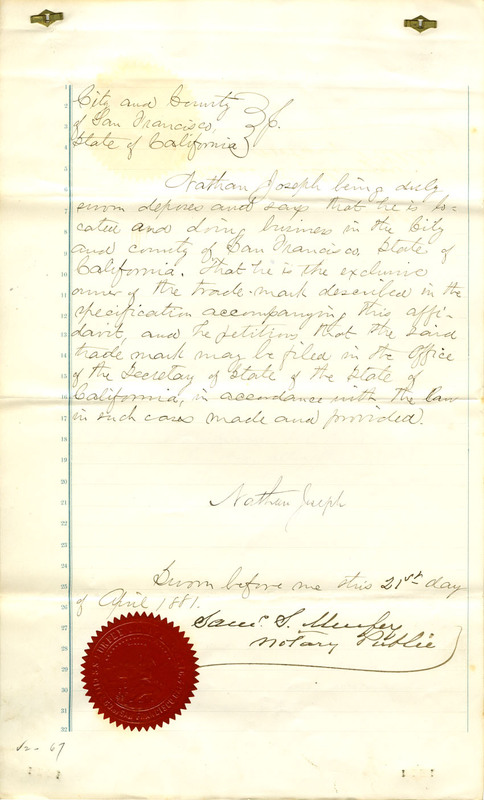 City and County
of San Francisco,
State of California
Nathan Joseph being duly
sworn deposes and says that he is lo-
cated and doing business in the City
and county of San Francisco State of
California. That he is the exclusive
owner of the trade-mark described in the
specification accompanying this affi-
davit, and he petitions that the said
trade mark may be filed in the Office
of the Secretary of State of the State of
California, in accordance with the law
in such cases made and provided.
Nathan Joseph
Sworn before me this 21st day
of April 1881.
Saml. S.
Notary Public
1
2
3
4
5
6
7
8
9
10
11
12
13
14
15
16
17
18
19
20
21
22
23
24
25
26
27
28
29
30
31
32
67